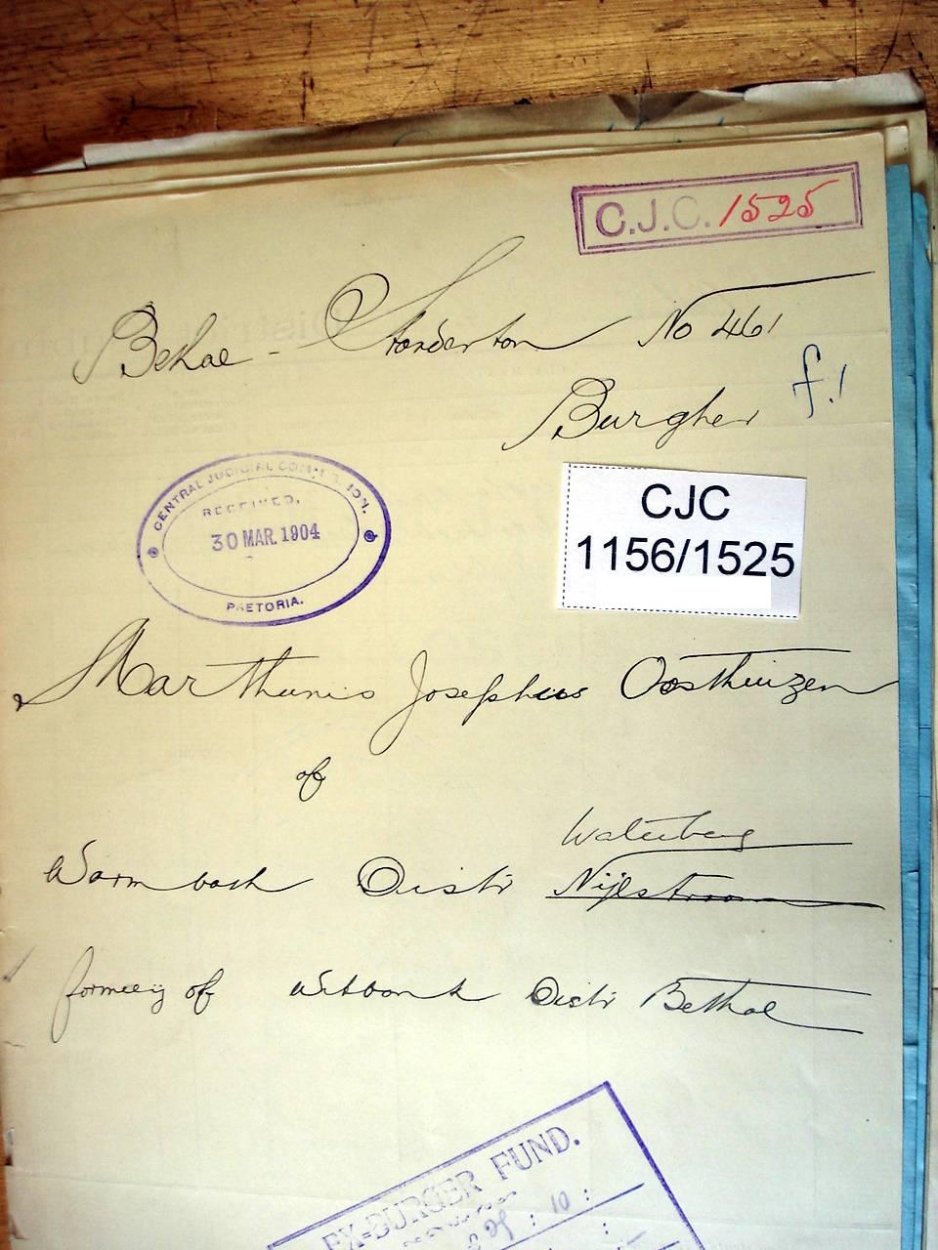 C.J.C. 1525
Bethae - Standerton No 461
Burgher
f.1
CENTRAL JUDICIAL COMMISSION.
RECEIVED.
30 MAR. 1904
PRETORIA.
CJC
1156/1525
Marthunis Josephus Oosthuizen
of
Waterberg
Warmbath Distr Nijlstroom
formerly of Witbank Distr Bethal
EX-BURGER FUND.
: 10 :